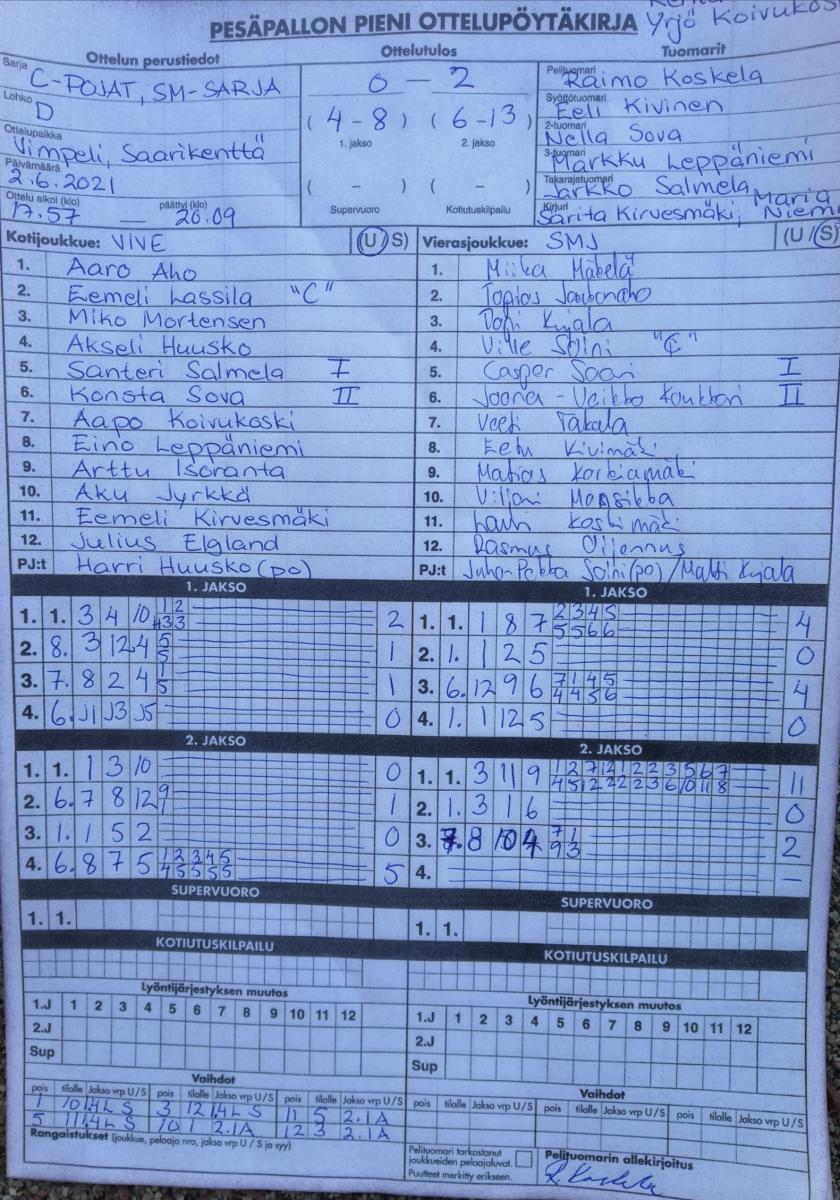 PESÄPALLON PIENI OTTELUPÖYTÄKIRJA
Yrjö Koivukos
Ottelun perustiedot
Ottelutulos
Tuomarit
Sarja C-POJAT, SM-SARJA
Lohko D
Ottelupaikka Vimpeli, Saarikenttä
Päivämäärä 2.6.2021
Ottelu alkoi (klo) 17.57 — päättyi (klo) 20.09
0 - 2
(4-8) (6-13)
1. jakso 2. jakso
( - ) ( - )
Supervuoro Kotiutuskilpailu
Pelituomari Raimo Koskela
Syöttötuomari Eeli Kivinen
2-tuomari Nella Sova
3-tuomari Markku Leppäniemi
Takarajatuomari Jarkko Salmela
Kirjuri Sarita Kirvesmäki, Maria Niemi
Kotijoukkue: VIVE (U/S)
1. Aaro Aho
2. Eemeli Lassila "C"
3. Miko Mortensen
4. Akseli Huusko
5. Santeri Salmela I
6. Konsta Sova II
7. Aapo Koivukoski
8. Eino Leppäniemi
9. Arttu Isoranta
10. Aku Jyrkkä
11. Eemeli Kirvesmäki
12. Julius Elgland
PJ:t Harri Huusko (po)
Vierasjoukkue: SMJ (U/S)
1. Miika Mäkelä
2. Topias
3. Kujala
4. Ville Soini "C"
5. Casper Saari I
6. Joona-Veikko II
7. Veeti Takala
8. Eetu Kivimäki
9. Matias Korkiamäki
10. Viljami Mansikka
11. Lauri Koskimäki
12. Rasmus
PJ:t Juha-Pekka Soini (po) / Matti Kujala
1. JAKSO
1. 1. 3 4 10 2
2. 8. 3 12 4 5 5 1
3. 7. 8 2 4 1 5 1
4. 6. 11 13 15 0
1. JAKSO
1. 1. 1 8 7 2 3 4 5 5 5 6 6 4
2. 1. 1 2 5 0
3. 6. 12 9 6 7 1 4 5 4 4 5 6 4
4. 1. 1 12 5 0
2. JAKSO
1. 1. 1 3 10 0
2. 6. 7 8 12 9 1
3. 1. 1 5 2 0
4. 6. 8 7 5 1 2 3 4 5 4 5 5 5 5 5
2. JAKSO
1. 1. 3 11 9 11
2. 1. 3 1 6 0
3. 7. 8 10 4 7 1 9 3 2
4. -
SUPERVUORO
1. 1.
SUPERVUORO
1. 1.
KOTIUTUSKILPAILU
KOTIUTUSKILPAILU
Lyöntijärjestyksen muutos
1.J 1 2 3 4 5 6 7 8 9 10 11 12
2.J
Sup
Lyöntijärjestyksen muutos
1.J 1 2 3 4 5 6 7 8 9 10 11 12
2.J
Sup
Vaihdot
pois tilalle Jakso vrp U/S pois tilalle Jakso vrp U/S pois tilalle Jakso vrp U/S
1 10 1.4L S 3 12 1.4L S 11 5 2.1A
5 11 1.4L S 10 1 2.1A 12 3 2.1A
Rangaistukset (joukkue, pelaaja nro, jakso vrp U / S ja syy)
Vaihdot
pois tilalle Jakso vrp U/S pois tilalle Jakso vrp U/S pois tilalle Jakso vrp U/S
Pelituomari tarkastanut
joukkueiden pelaajaluvat.
Puutteet merkitty erikseen.
Pelituomarin allekirjoitus